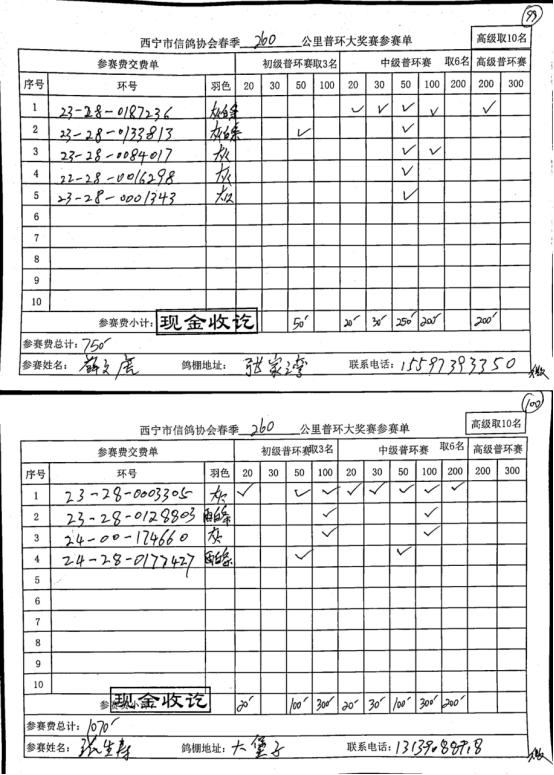 99
西宁市信鸽协会春季 260 公里普环大奖赛参赛单 高级取10名
参赛费交费单 初级普环赛取3名 中级普环赛 取6名 高级普环赛
序号 环号 羽色 20 30 50 100 20 30 50 100 200 200 300
1 23-28-0187236 灰白条 ✓ ✓ ✓ ✓ ✓
2 23-28-0133813 灰白条 ✓ ✓
3 23-28-0084017 灰 ✓ ✓
4 22-28-0016298 灰 ✓
5 23-28-0001343 灰 ✓
6
7
8
9
10
参赛费小计: 现金收讫 50 20 30 250 200 200
参赛费总计: 750
参赛姓名: 薛文虎 鸽棚地址: 张家湾 联系电话: 15597393350
缴
100
西宁市信鸽协会春季 260 公里普环大奖赛参赛单 高级取10名
参赛费交费单 初级普环赛取3名 中级普环赛 取6名 高级普环赛
序号 环号 羽色 20 30 50 100 20 30 50 100 200 200 300
1 23-28-0003305 灰 ✓ ✓ ✓ ✓ ✓ ✓ ✓ ✓
2 23-28-0128803 雨白条 ✓ ✓
3 24-00-174660 灰 ✓ ✓
4 24-28-0177427 雨白条 ✓ ✓
5
6
7
8
9
10
参赛费小计: 现金收讫 20 100 300 20 30 100 300 200
参赛费总计: 1070
参赛姓名: 张生寿 鸽棚地址: 大堡子 联系电话: 13139088918
缴